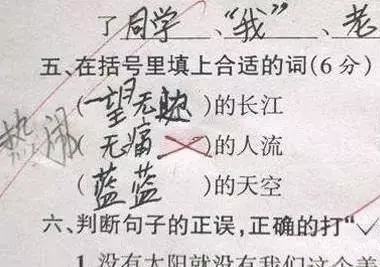 了同学、“我”、老
五、在括号里填上合适的词(6分)
(一望无)的长江
热闹
(无痛)的人流
(蓝蓝)的天空
六、判断句子的正误,正确的打“√
1.没有太阳就没有我们这个美